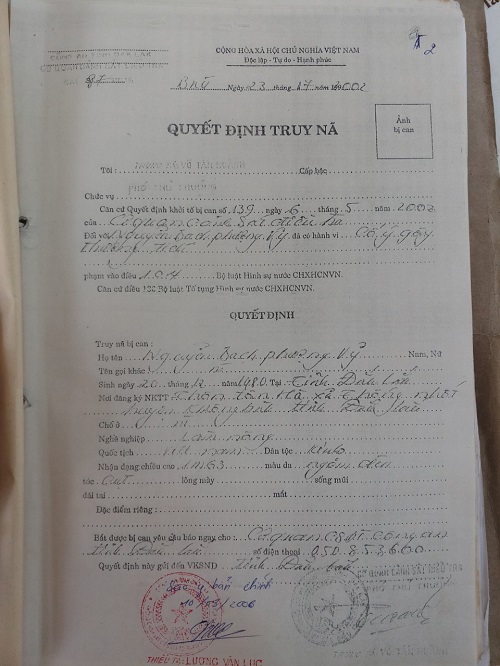 2
CỘNG HÒA XÃ HỘI CHỦ NGHĨA VIỆT NAM
Độc lập - Tự do - Hạnh phúc
Ngày 23 tháng 07 năm 2002
QUYẾT ĐỊNH TRUY NÃ
Ảnh
bị can
Tôi : Cấp bậc
Chức vụ
Căn cứ Quyết định khởi tố bị can số 139 ngày 6 tháng 5 năm 2002
của Cơ quan cảnh sát điều tra
Đối với Nguyễn Bạch phượng Vỹ đã có hành vi Cố ý gây
thương tích
phạm vào điều 104 Bộ luật Hình sự nước CHXHCNVN.
Căn cứ điều Bộ luật Tố tụng Hình sự nước CHXHCNVN.
QUYẾT ĐỊNH
Truy nã bị can :
Họ tên Nguyễn Bạch phượng Vỹ Nam, Nữ
Tên gọi khác :
Sinh ngày 20 tháng 12 năm 1980 Tại Tỉnh Đắk Lắk
Nơi đăng ký NKTT Thôn Tân Hà, xã thống nhất
huyện Krông Búk tỉnh Đắk Lắk
Chỗ ở
Nghề nghiệp Làm nông
Quốc tịch Việt nam Dân tộc Kinh
Nhận dạng chiều cao 1m63 màu da ngăm đen
tóc lông mày sống mũi
dái tai mắt
Đặc điểm riêng :
Bắt được bị can yêu cầu báo ngay cho : Cơ quan CSĐT công an
tỉnh Đắk Lắk số điện thoại 050.853600
Quyết định này gửi đến VKSND tỉnh Đắk Lắk
Sao y bản chính
THIẾU TÁ: LƯƠNG VĂN LỤC